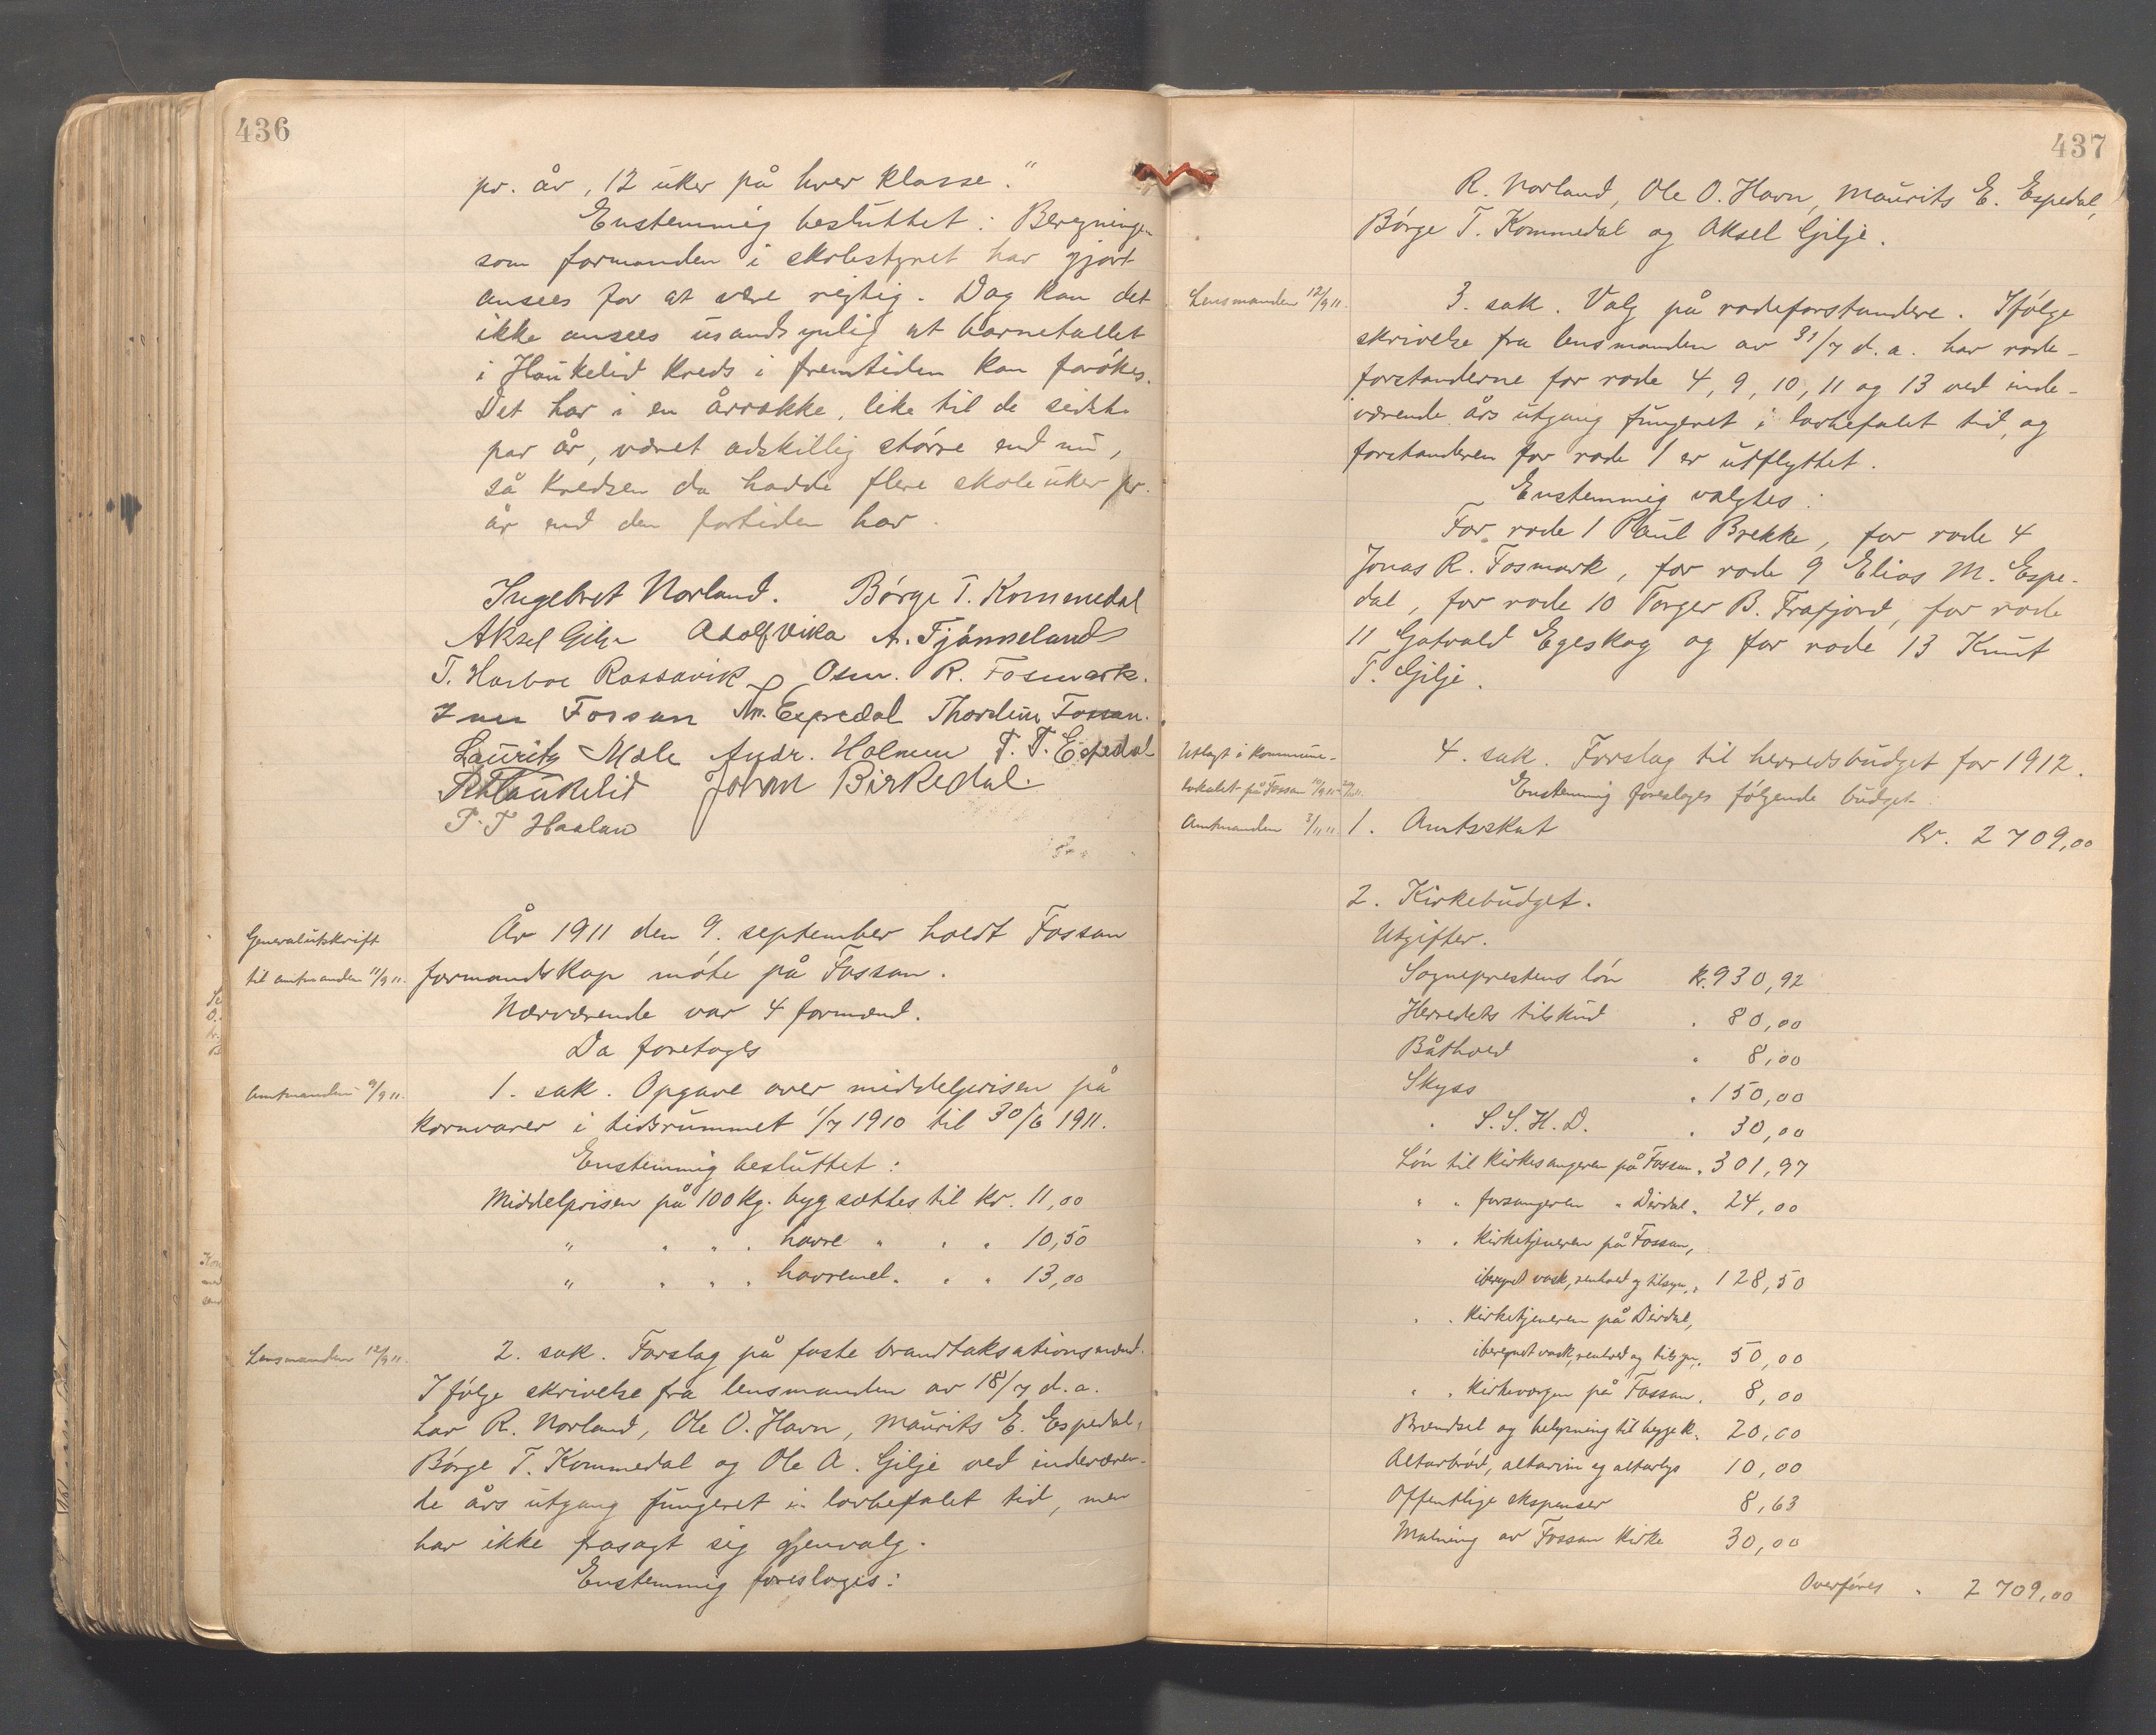 436
pr. år, 12 uker på hver klasse."
Enstemmig besluttet: Beregningen
som formanden i skolestyret har gjort
ansees for at være rigtig. Dog kan det
ikke ansees usandsynlig at barnetallet
i Haukelid kreds i fremtiden kan forökes.
Det har i en årrække, like til de sidste
par år, været adskillig större end nu,
så kredsen da hadde flere skoleuker pr.
år end den fortiden har.
Ingebret Norland. Börge T. Kommedal
Aksel Gilje Adolf Vika A. Tjånneland
T. Harboe Rossavik Osm. R. Fosmark.
Fossan M. Espedal Thordin Fossan.
Lauritz Mæle Andr. Holmen T. T. Espedal
Haukelid Johan Birkedal.
T. T Haaland
Generalutskrift
til amtmanden 11/9 11.
År 1911 den 9. september holdt Fossan
formandskap möte på Fossan.
Nærværende var 4 formænd.
Da foretoges
Amtmanden 9/9 11.
1. sak. Opgave over middelprisen på
kornvarer i tidsrummet 1/7 1910 til 30/6 1911.
Enstemmig besluttet:
Middelprisen på 100 kg. byg sættes til kr. 11,00
" " " " havre " " " 10,50
" " " " havremel " " " 13,00
Lensmanden 12/9 11.
2. sak. Forslag på faste brandtaksationsmænd.
Ifölge skrivelse fra lensmanden av 18/7 d.a.
har R. Norland, Ole O. Havn, Maurits E. Espedal,
Börge T. Kommedal og Ole A. Gilje ved indeværen-
de års utgang fungeret i lovbefalet tid, men
har ikke frasagt sig gjenvalg.
Enstemmig foresloges:
437
R. Norland, Ole O. Havn, Maurits E. Espedal,
Börge T. Kommedal og Aksel Gilje.
Lensmanden 12/9 11.
3. sak. Valg på rodeforstandere. Ifölge
skrivelse fra lensmanden av 31/7 d.a. har rode-
forstanderne for rode 4, 9, 10, 11 og 13 ved inde-
værende års utgang fungeret i lovbefalet tid, og
forstanderen for rode 1 er utflyttet.
Enstemmig valgtes:
For rode 1 Paul Brekke, for rode 4
Jonas R. Fosmark, for rode 9 Elias M. Espe-
dal, for rode 10 Torger B. Frafjord, for rode
11 Gotvald Egeskog og for rode 13 Knut
T. Gilje.
Utlagt i kommune-
lokalet på Fossan
Amtmanden 3/11 11
4. sak. Forslag til herredsbudget for 1912.
Enstemmig foresloges fölgende budget:
1. Amtsskat Kr. 2 709,00
2. Kirkebudget.
Utgifter.
Sogneprestens lön Kr. 930,92
Herredets tilskud " 80,00
Båthold " 8,00
Skyss " 150,00
" S.S.H.D. " 30,00
Lön til kirkesangeren på Fossan " 301,97
" " forsangeren " Dirdal " 24,00
" " kirketjeneren på Fossan,
iberegnet vask, renhold og tilsyn, " 128,50
" " kirketjeneren på Dirdal,
iberegnet vask, renhold og tilsyn, 50,00
" " kirkevergen på Fossan, 8,00
Brændsel og belysning til begge k. 20,00
Altarbröd, altarvin og altarlys 10,00
Offentlige ekspenser 8,63
Malning av Fossan kirke 30,00
Overföres " 2 709,00